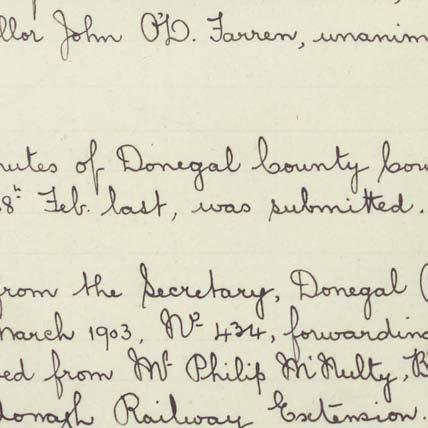 llor John O'D. Farren, unanim
nutes of Donegal County Cou
8th Feb. last, was submitted.
from the Secretary, Donegal
March 1903, No 434, forwarding
ed from Mr Philip McNulty, B
donagh Railway Extension.